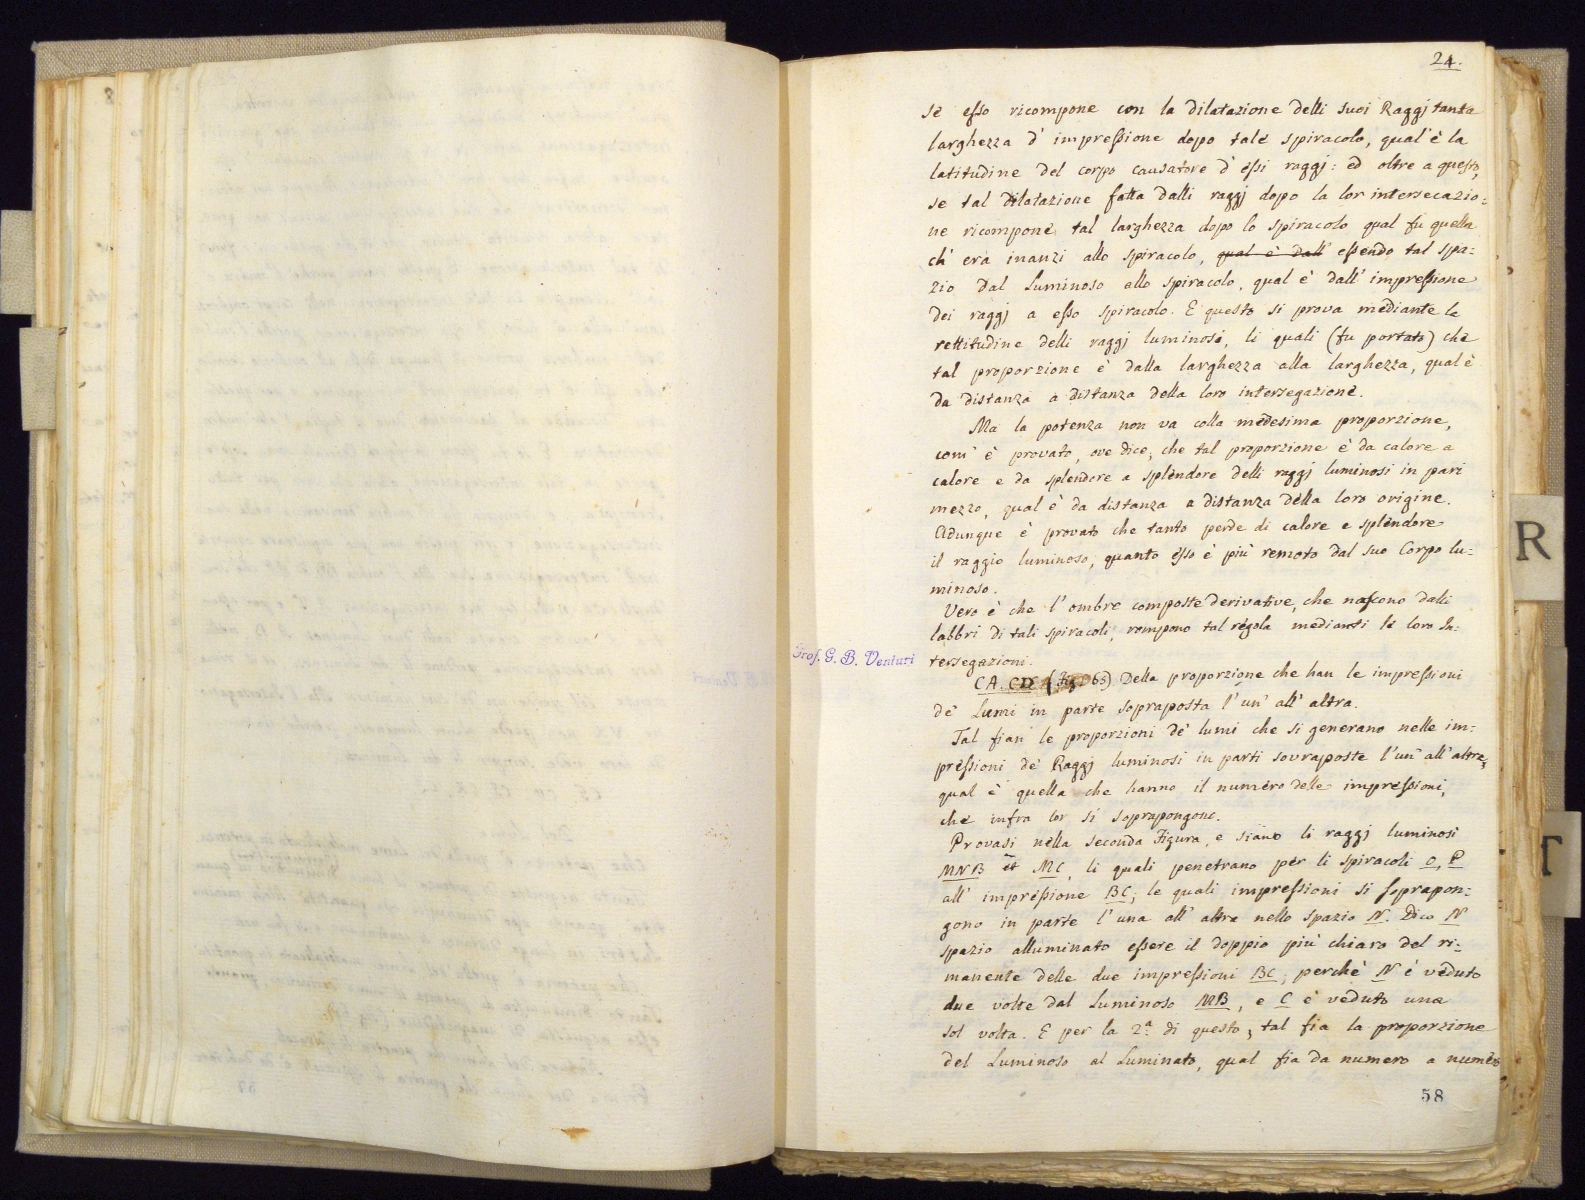 24.
se esso ricompone con la dilatazione delli suoi Raggj tanta
larghezza d' impressione dopo tale spiracolo, qual' è la
latitudine del corpo causatore d' essi raggj: ed oltre a questo,
se tal dilatazione fatta dalli raggj dopo la lor intersecazio:
ne ricompone tal larghezza dopo lo spiracolo qual fu quella
ch' era inanzi allo spiracolo, qual è dall' essendo tal spa:
zio dal Luminoso allo spiracolo, qual è dall' impressione
dei raggj a esso spiracolo. E questo si prova mediante le
rettitudine delli raggj luminosi, li quali (fu portato) che
tal proporzione è dalla larghezza alla larghezza, qual è
da distanza a distanza della loro intersegazione.
Ma la potenza non va colla medesima proporzione,
com' è provato, ove dice, che tal proporzione è da calore a
calore e da splendore a splendore delli raggj luminosi in pari
mezzo, qual è da distanza a distanza della loro origine.
Adunque è provato che tanto perde di calore e splendore
il raggio luminoso, quanto esso è più remoto dal suo Corpo lu:
minoso.
Vero è che l' ombre composte derivative, che nascono dalli
labbri di tali spiracoli, rompono tal regola medianti le loro In:
tersegazioni.
Prof. G. B. Venturi
CA. CD (Fig. 65) Della proporzione che han le impressioni
de' Lumi in parte sopraposta l' un' all' altra.
Tal fian le proporzioni de' lumi che si generano nelle im:
pressioni de' Raggj luminosi in parti sovraposte l'un' all' altre,
qual è quella che hanno il numero delle impressioni,
che infra lor si soprapongono.
Provasi nella seconda Figura, e siano li raggj luminosi
MNB et MC, li quali penetrano per li spiracoli O, P
all' impressione BC; le quali impressioni si soprapon:
gono in parte l' una all' altra nello spazio N. Dico N
spazio alluminato essere il doppio più chiaro del ri:
manente delle due impressioni BC; perchè N è veduto
due volte dal Luminoso MB, e C è veduto una
sol volta. E per la 2.ª di questo, tal fia la proporzione
del Luminoso al Luminato, qual fia da numero a numero
58